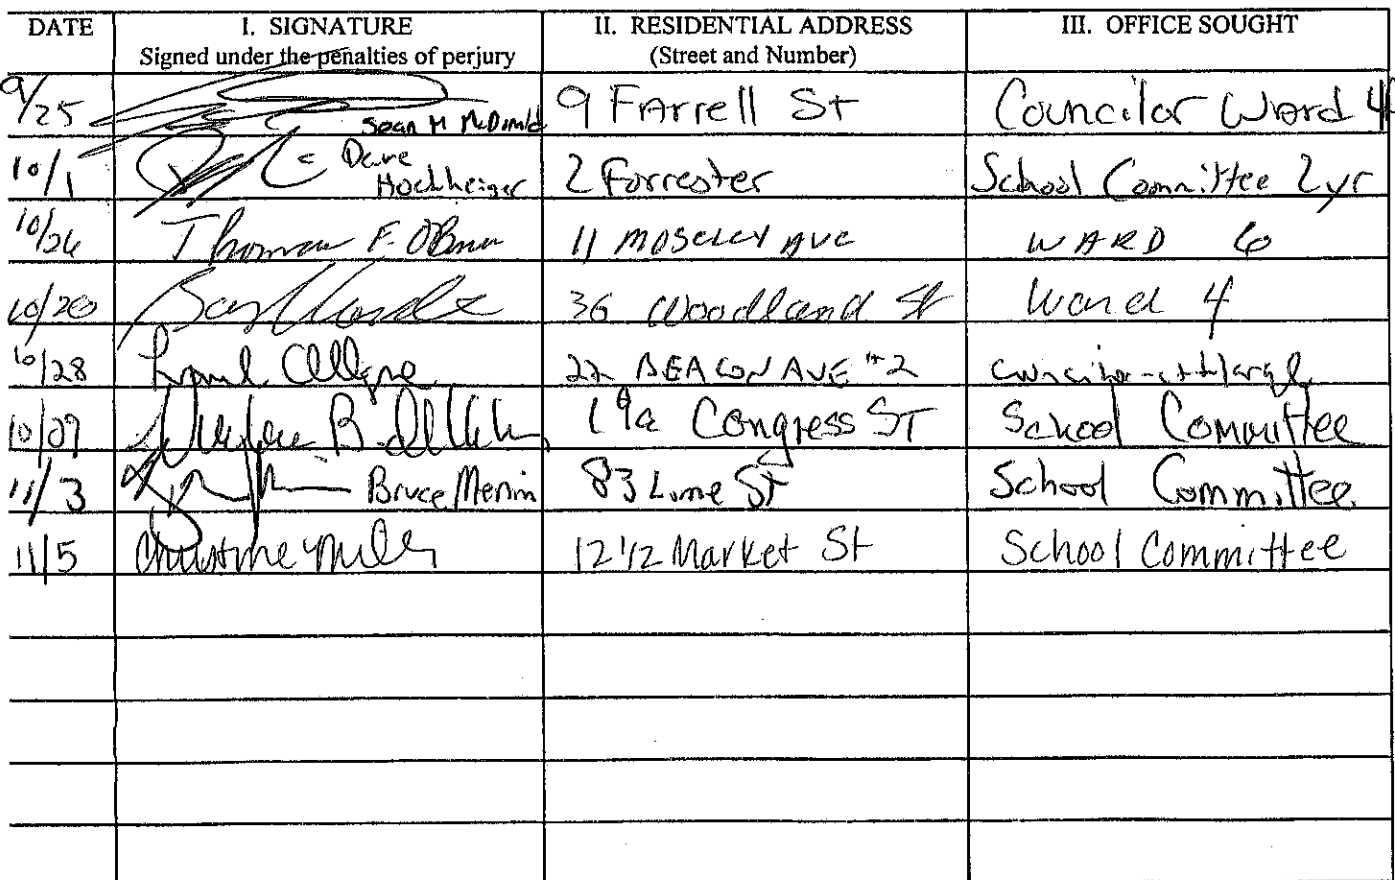 DATE I. SIGNATURE II. RESIDENTIAL ADDRESS III. OFFICE SOUGHT
Signed under the penalties of perjury (Street and Number)
9/25 Sean M McDonald 9 Farrell St Councilor Ward 4
10/1 Dave Hochheiser 2 Forrester School Committee 2yr
10/26 Thomas F. O'Brien 11 MOSELEY AVE WARD 6
10/20 36 Woodland St Ward 4
10/28 22 BEACON AVE #2 councilor-at-large
10/29 B. 19a Congress ST School Committee
11/3 Bruce Menin 83 Lime St School Committee
11/5 Christine Miller 12 1/2 Market St School Committee